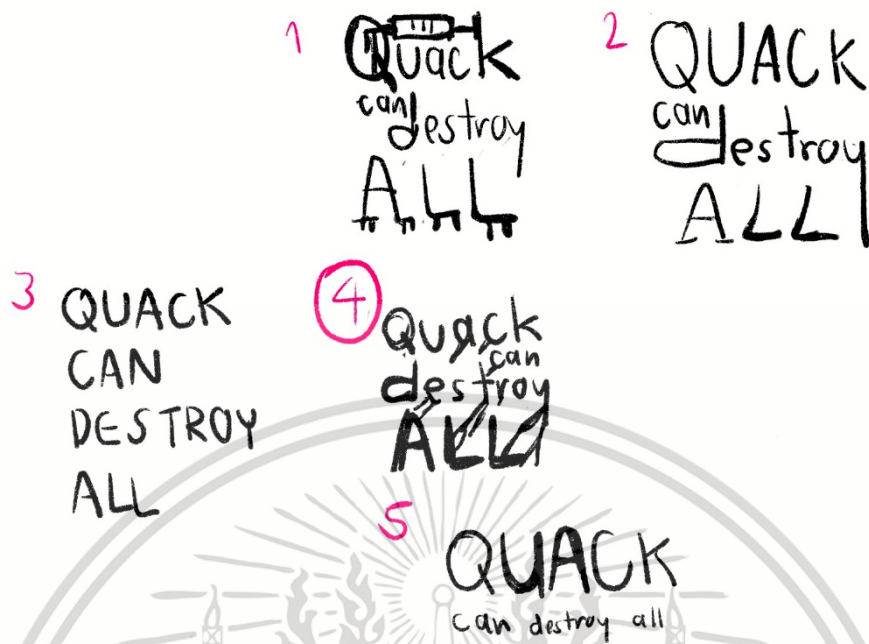 1
Quack
can
destroy
ALL
2
QUACK
can
destroy
ALL
3
QUACK
CAN
DESTROY
ALL
4
Quack
can
destroy
ALL
5
QUACK
can destroy all